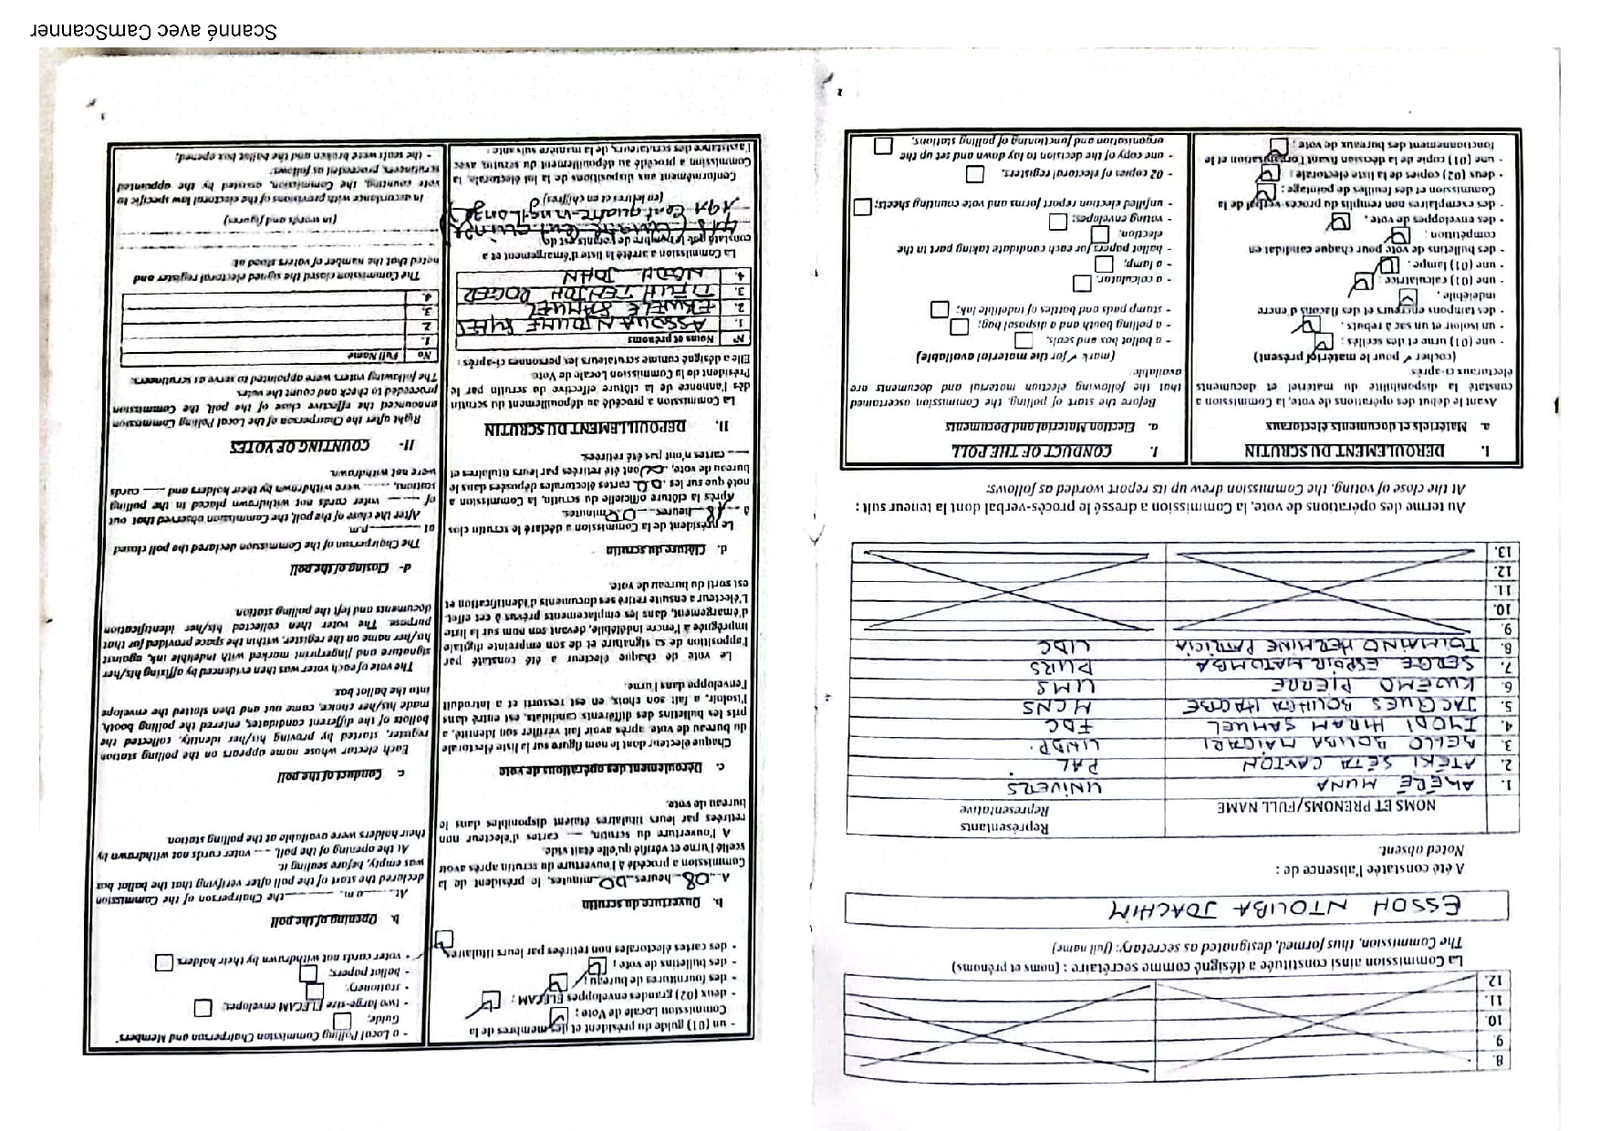 8.
9.
10.
11.
12.
La Commission ainsi constituée a désigné comme secrétaire : (noms et prénoms)
The Commission, thus formed, designated as secretary: (full name)
ESSOH NTOUBA JOACHIM
A été constatée l'absence de :
Noted absent.
NOMS ET PRENOMS/FULL NAME
Représentants
Representative
1. AKERE MUNA UNIVERS
2. ATEKI SETA CAXTON PAL
3. BELLO BOUBA MAIGARI UNDP
4. IYODI HIRAM SAMUEL FDC
5. JACQUES BOUHGA HAGBE MCNS
6. KWEMO PIERRE UMS
7. SERGE ESPOIR MATOMBA PURS
8. TOMAINO HERMINE PATRICIA UDC
9.
10.
11.
12.
13.
Au terme des opérations de vote, la Commission a dressé le procès-verbal dont la teneur suit :
At the close of voting, the Commission drew up its report worded as follows:
I. DEROULEMENT DU SCRUTIN
a. Matériels et documents électoraux
Avant le début des opérations de vote, la Commission a
constaté la disponibilité du matériel et documents
électoraux ci-après
(cocher ✓ pour le matériel présent)
- une (01) urne et des scellés ;
- un isoloir et un sac à rebuts ;
- des tampons encreurs et des flacons d'encre
indélébile ;
- une (01) calculatrice ;
- une (01) lampe ;
- des bulletins de vote pour chaque candidat en
compétition ;
- des enveloppes de vote ;
- des exemplaires non remplis du procès-verbal de la
Commission et des feuilles de pointage ;
- deux (02) copies de la liste électorale ;
- une (01) copie de la décision fixant l'organisation et le
fonctionnement des bureaux de vote ;
I. CONDUCT OF THE POLL
a. Election Material and Documents
Before the start of polling, the Commission ascertained
that the following election material and documents are
available:
(mark ✓ for the material available)
- a ballot box and seals;
- a polling booth and a disposal bag;
- stamp pads and bottles of indelible ink;
- a calculator;
- a lamp;
- ballot papers for each candidate taking part in the
election;
- voting envelopes;
- unfilled election report forms and vote counting sheets;
- 02 copies of electoral registers;
- one copy of the decision to lay down and set up the
organisation and functioning of polling stations;
2
- un (01) guide du président et des membres de la
Commission Locale de Vote ;
- deux (02) grandes enveloppes ELECAM ;
- des fournitures de bureau ;
- des bulletins de vote ;
- des cartes électorales non retirées par leurs titulaires
b. Ouverture du scrutin
A 08 heures 00 minutes, le président de la
Commission a procédé à l'ouverture du scrutin après avoir
scellé l'urne et vérifié qu'elle était vide.
A l'ouverture du scrutin, — cartes d'électeur non
retirées par leurs titulaires étaient disponibles dans le
bureau de vote.
c. Déroulement des opérations de vote
Chaque électeur dont le nom figure sur la liste électorale
du bureau de vote, après avoir fait vérifier son identité, a
pris les bulletins des différents candidats, est entré dans
l'isoloir, a fait son choix, en est ressorti et a introduit
l'enveloppe dans l'urne.
Le vote de chaque électeur a été constaté par
l'apposition de sa signature et de son empreinte digitale
imprégnée à l'encre indélébile, devant son nom sur la liste
d'émargement, dans les emplacements prévus à cet effet.
L'électeur a ensuite retiré ses documents d'identification et
est sorti du bureau de vote.
d. Clôture du scrutin
Le président de la Commission a déclaré le scrutin clos
à 18 heures 00 minutes.
Après la clôture officielle du scrutin, la Commission a
noté que sur les 00 cartes électorales déposées dans le
bureau de vote, 00 ont été retirées par leurs titulaires et
— cartes n'ont pas été retirées.
II. DEPOUILLEMENT DU SCRUTIN
La Commission a procédé au dépouillement du scrutin
dès l'annonce de la clôture effective du scrutin par le
Président de la Commission Locale de Vote.
Elle a désigné comme scrutateurs les personnes ci-après :
N° Noms et prénoms
1. ASSOUA NDOUME
2. EKWELE SAMUEL
3. TENJOH ROGER
4. NGOH JOHN
La Commission a arrêté la liste d'émargement et a
constaté que le nombre de votants est de
191 Cent quatre-vingt onze
(en lettres et en chiffres)
Conformément aux dispositions de la loi électorale, la
Commission a procédé au dépouillement du scrutin, avec
l'assistance des scrutateurs, de la manière suivante :
- a Local Polling Commission Chairperson and Members'
Guide;
- two large-size ELECAM envelopes;
- stationery;
- ballot papers;
- voter cards not withdrawn by their holders
b. Opening of the poll
At a.m. the Chairperson of the Commission
declared the start of the poll after verifying that the ballot box
was empty, before sealing it.
At the opening of the poll, — voter cards not withdrawn by
their holders were available at the polling station.
c. Conduct of the poll
Each elector whose name appears on the polling station
register, started by proving his/her identity, collected the
ballots of the different candidates, entered the polling booth,
made his/her choice, came out and then slotted the envelope
into the ballot box
The vote of each voter was then evidenced by affixing his/her
signature and fingerprint marked with indelible ink, against
his/her name on the register, within the space provided for that
purpose. The voter then collected his/her identification
documents and left the polling station.
d- Closing of the poll
The Chairperson of the Commission declared the poll closed
at p.m.
After the close of the poll, the Commission observed that out
of — voter cards not withdrawn placed in the polling
stations, — were withdrawn by their holders and — cards
were not withdrawn.
II- COUNTING OF VOTES
Right after the Chairperson of the Local Polling Commission
announced the effective close of the poll, the Commission
proceeded to check and count the votes.
The following voters were appointed to serve as scrutineers:
No Full Name
1.
2.
3.
4.
The Commission closed the signed electoral register and
noted that the number of voters stood at:
(in words and figures)
In accordance with provisions of the electoral law specific to
vote counting, the Commission, assisted by the appointed
scrutineers, proceeded as follows:
- the seals were broken and the ballot box opened;
3
Scanné avec CamScanner